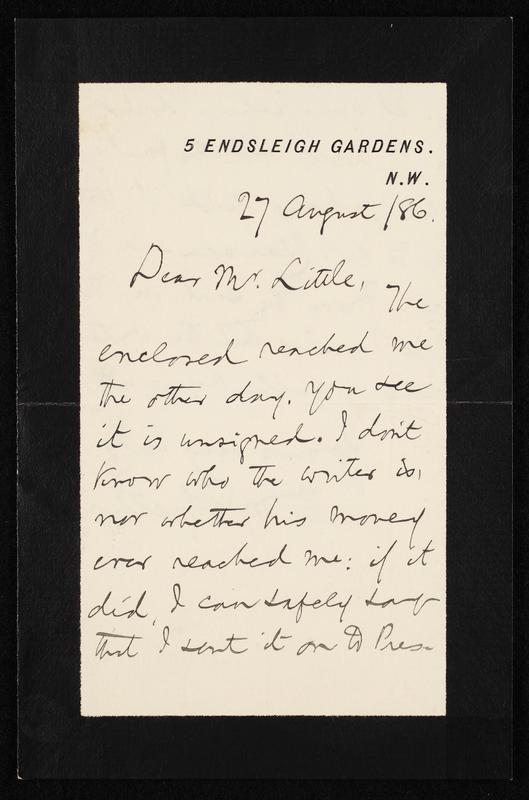 5 ENDSLEIGH GARDENS.
N.W.
27 August /86.
Dear Mr. Little,
The
enclosed reached me
the other day. You see
it is unsigned. I don't
know who the writer is,
nor whether his money
ever reached me: if it
did, I can safely say
that I sent it on to Pres-